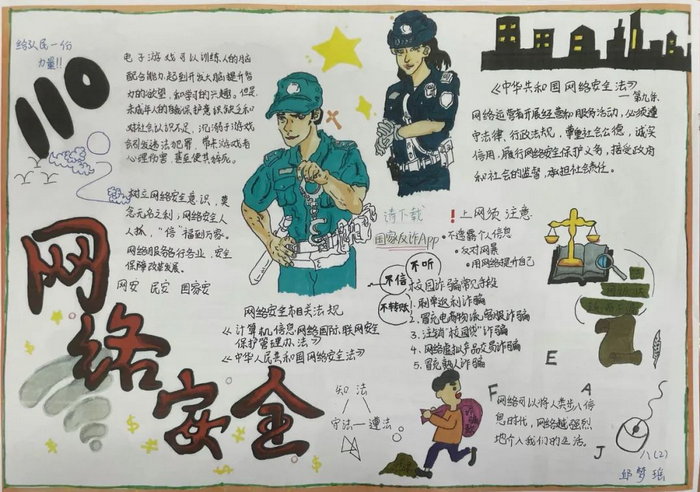 给人民一份
力量!!
110
电子游戏可以训练人的脑
配合能力,起到开发大脑提升智
力的欲望,和学习的兴趣。但是
未成年人的脑保护意识缺乏和
对社会认识不足,沉溺于游戏
会引发违法犯罪,带来游戏者
心理伤害,甚至使其猝死。
树立网络安全意识,莫
念无名之利,网络安全人
人抓,“倍”福到万家。
网络服务各行各业,安全
保障改革发展。
网安 民安 国家安
网络安全
网络安全相关法规
《计算机信息网络国际联网安全
保护管理办法》
《中华人民共和国网络安全法》
知法
守法 遵法
《中华共和国网络安全法》
第九条
网络运营者开展经营和服务活动,必须遵
守法律、行政法规,尊重社会公德,诚实
信用,履行网络安全保护义务,接受政府
和社会的监督,承担社会责任。
请下载
国家反诈App
不听
不信
不转账
!上网须注意
•不透露个人信息
•反对网暴
•用网络提升自己
校园诈骗常见手段
1.刷单返利诈骗
2.冒充电商物流客服诈骗
3.注销“校园贷”诈骗
4.网络虚拟产品交易诈骗
5.冒充熟人诈骗
E
F
A
J
网络可以将人类步入信
息时代,网络越强烈
地介入我们的生活。
八(2)
邱梦瑶